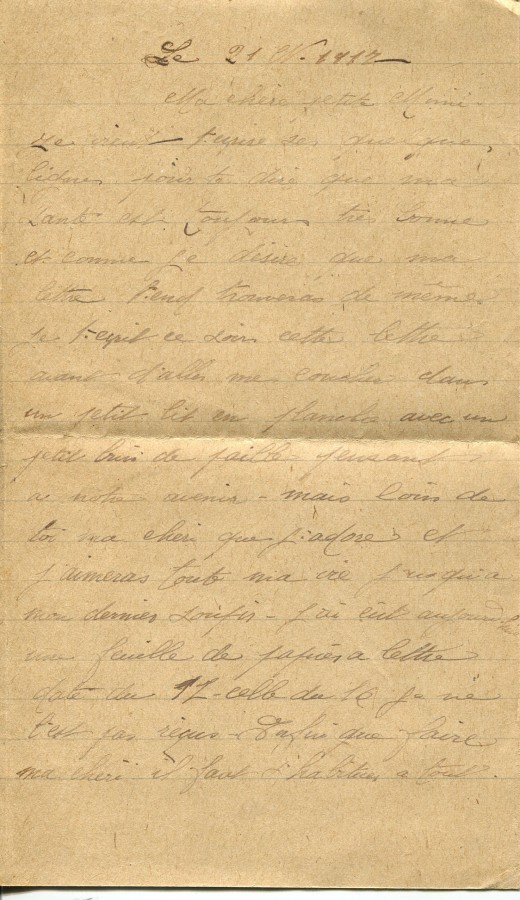 Le 21 N. 1917
Ma chère petite Mimi
Je vient t'egrire ses quelque
lignes pour te dire que ma
Santé est toujours très bonne
et comme je désire que ma
lettre t'enf trouveras de même
je t'egrit ce soir cette lettre
avant d'aller me coucher dans
un petit lit en planche avec un
petit brin de paille pensant
a notre avenir - mais loin de
toi ma cheri que j'adore et
j'aimeras toute ma vie jusqu'a
mon dernier soupir - j'ai eut aujourd'hui
une feuille de papier a lettre
daté du 17 - celle du 16 je ne
l'est pas reçus - Enfin que faire
ma cheri il faut s'habituer a tout.